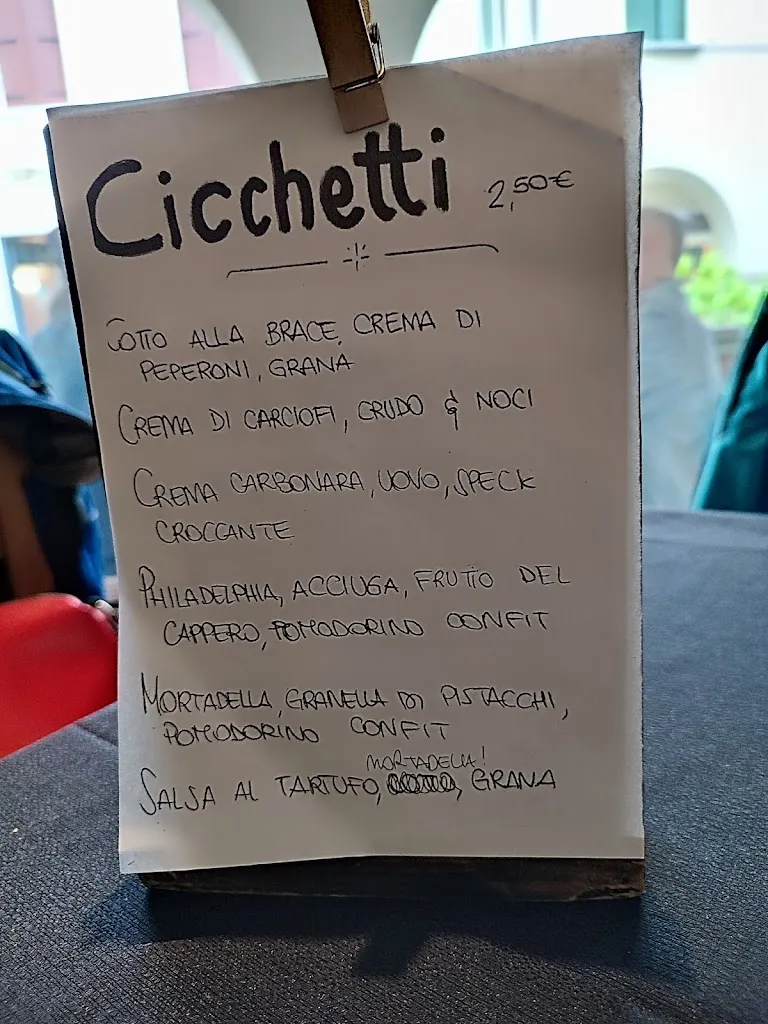 Cicchetti 2,50€
COTTO ALLA BRACE, CREMA DI
PEPERONI, GRANA
CREMA DI CARCIOFI, CRUDO & NOCI
CREMA CARBONARA, UOVO, SPECK
CROCCANTE
PHILADELPHIA, ACCIUGA, FRUTTO DEL
CAPPERO, POMODORINO CONFIT
MORTADELLA, GRANELLA DI PISTACCHI,
POMODORINO CONFIT
MORTADELLA!
SALSA AL TARTUFO, , GRANA